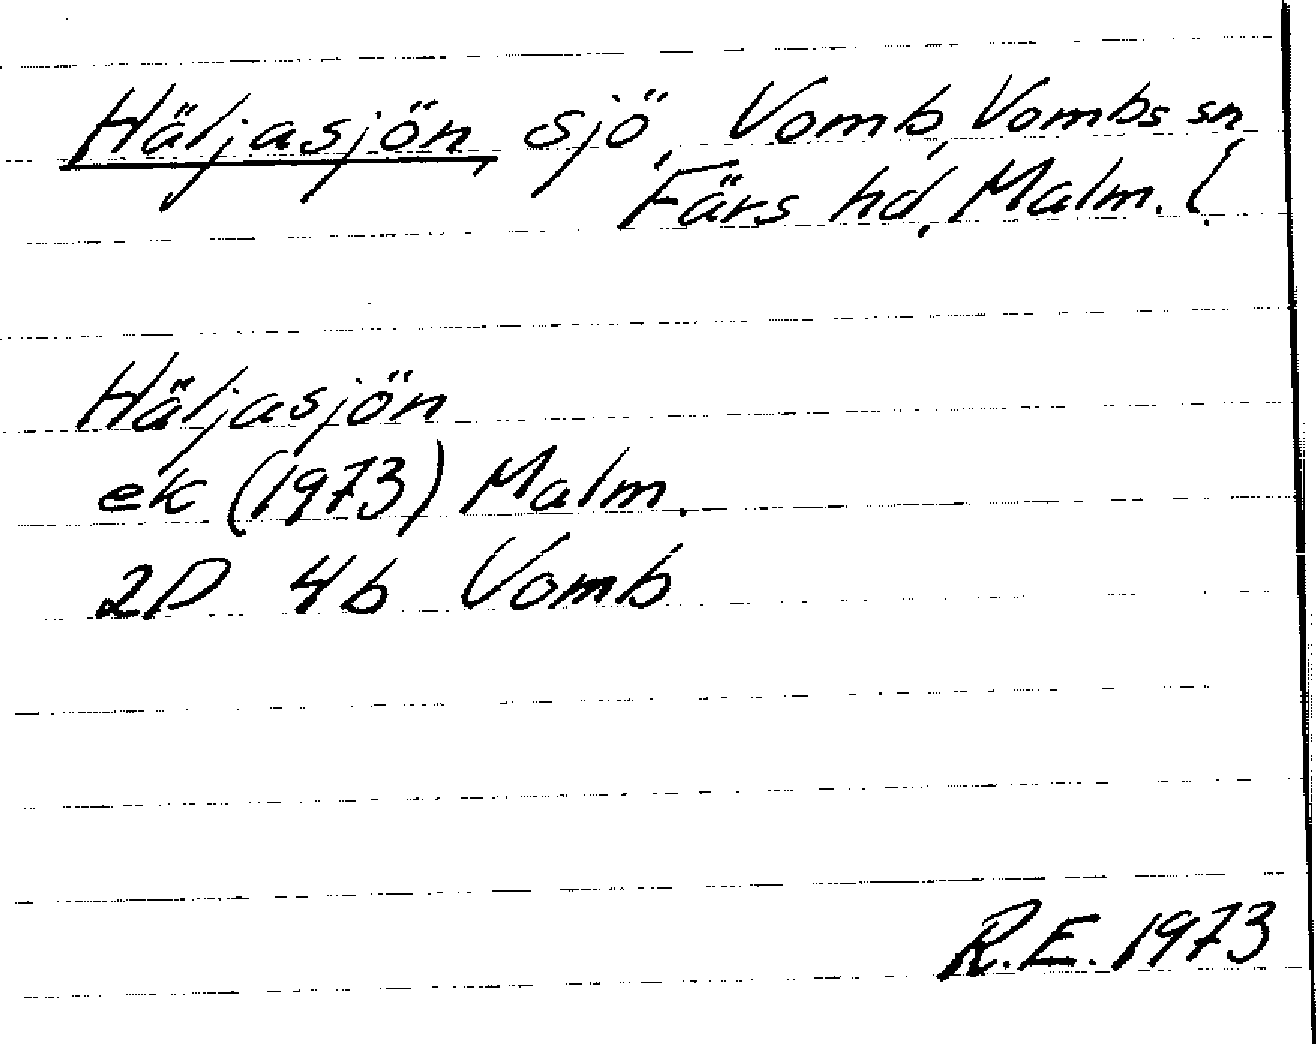 Häljasjön, sjö, Vomb, Vombs sn
Färs hd, Malm. l.
Häljasjön
ek (1973) Malm.
2D 4b Vomb
R.E. 1973